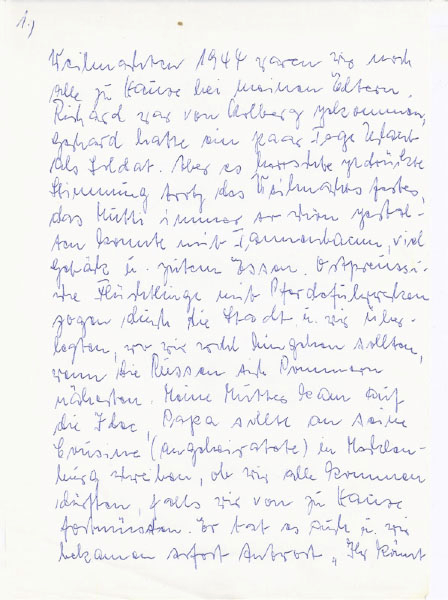 1.)
Weihnachten 1944 waren wir noch
alle zu Hause bei meinen Eltern.
Richard war von Kolberg gekommen,
Gerhard hatte ein paar Tage Urlaub
als Soldat. Aber es herrschte gedrückte
Stimmung trotz des Weihnachtsfestes,
das Mutti immer so schön gestal-
ten konnte mit Tannenbaum, viel
Gebäck u. gutem Essen. Ostpreussi-
sche Flüchtlinge mit Pferdefuhrwerken
zogen durch die Stadt u. wir über-
legten, wo wir wohl hingehen sollten,
wenn die Russen sich Pommern
näherten. Meine Mutter kam auf
die Idee, Papa sollte an seine
Cousine (angeheiratete) in Mecklen-
burg schreiben, ob wir alle kommen
dürften, falls wir von zu Hause
fortmüssten. Er tat es auch u. wir
bekamen sofort Antwort „Ihr könnt